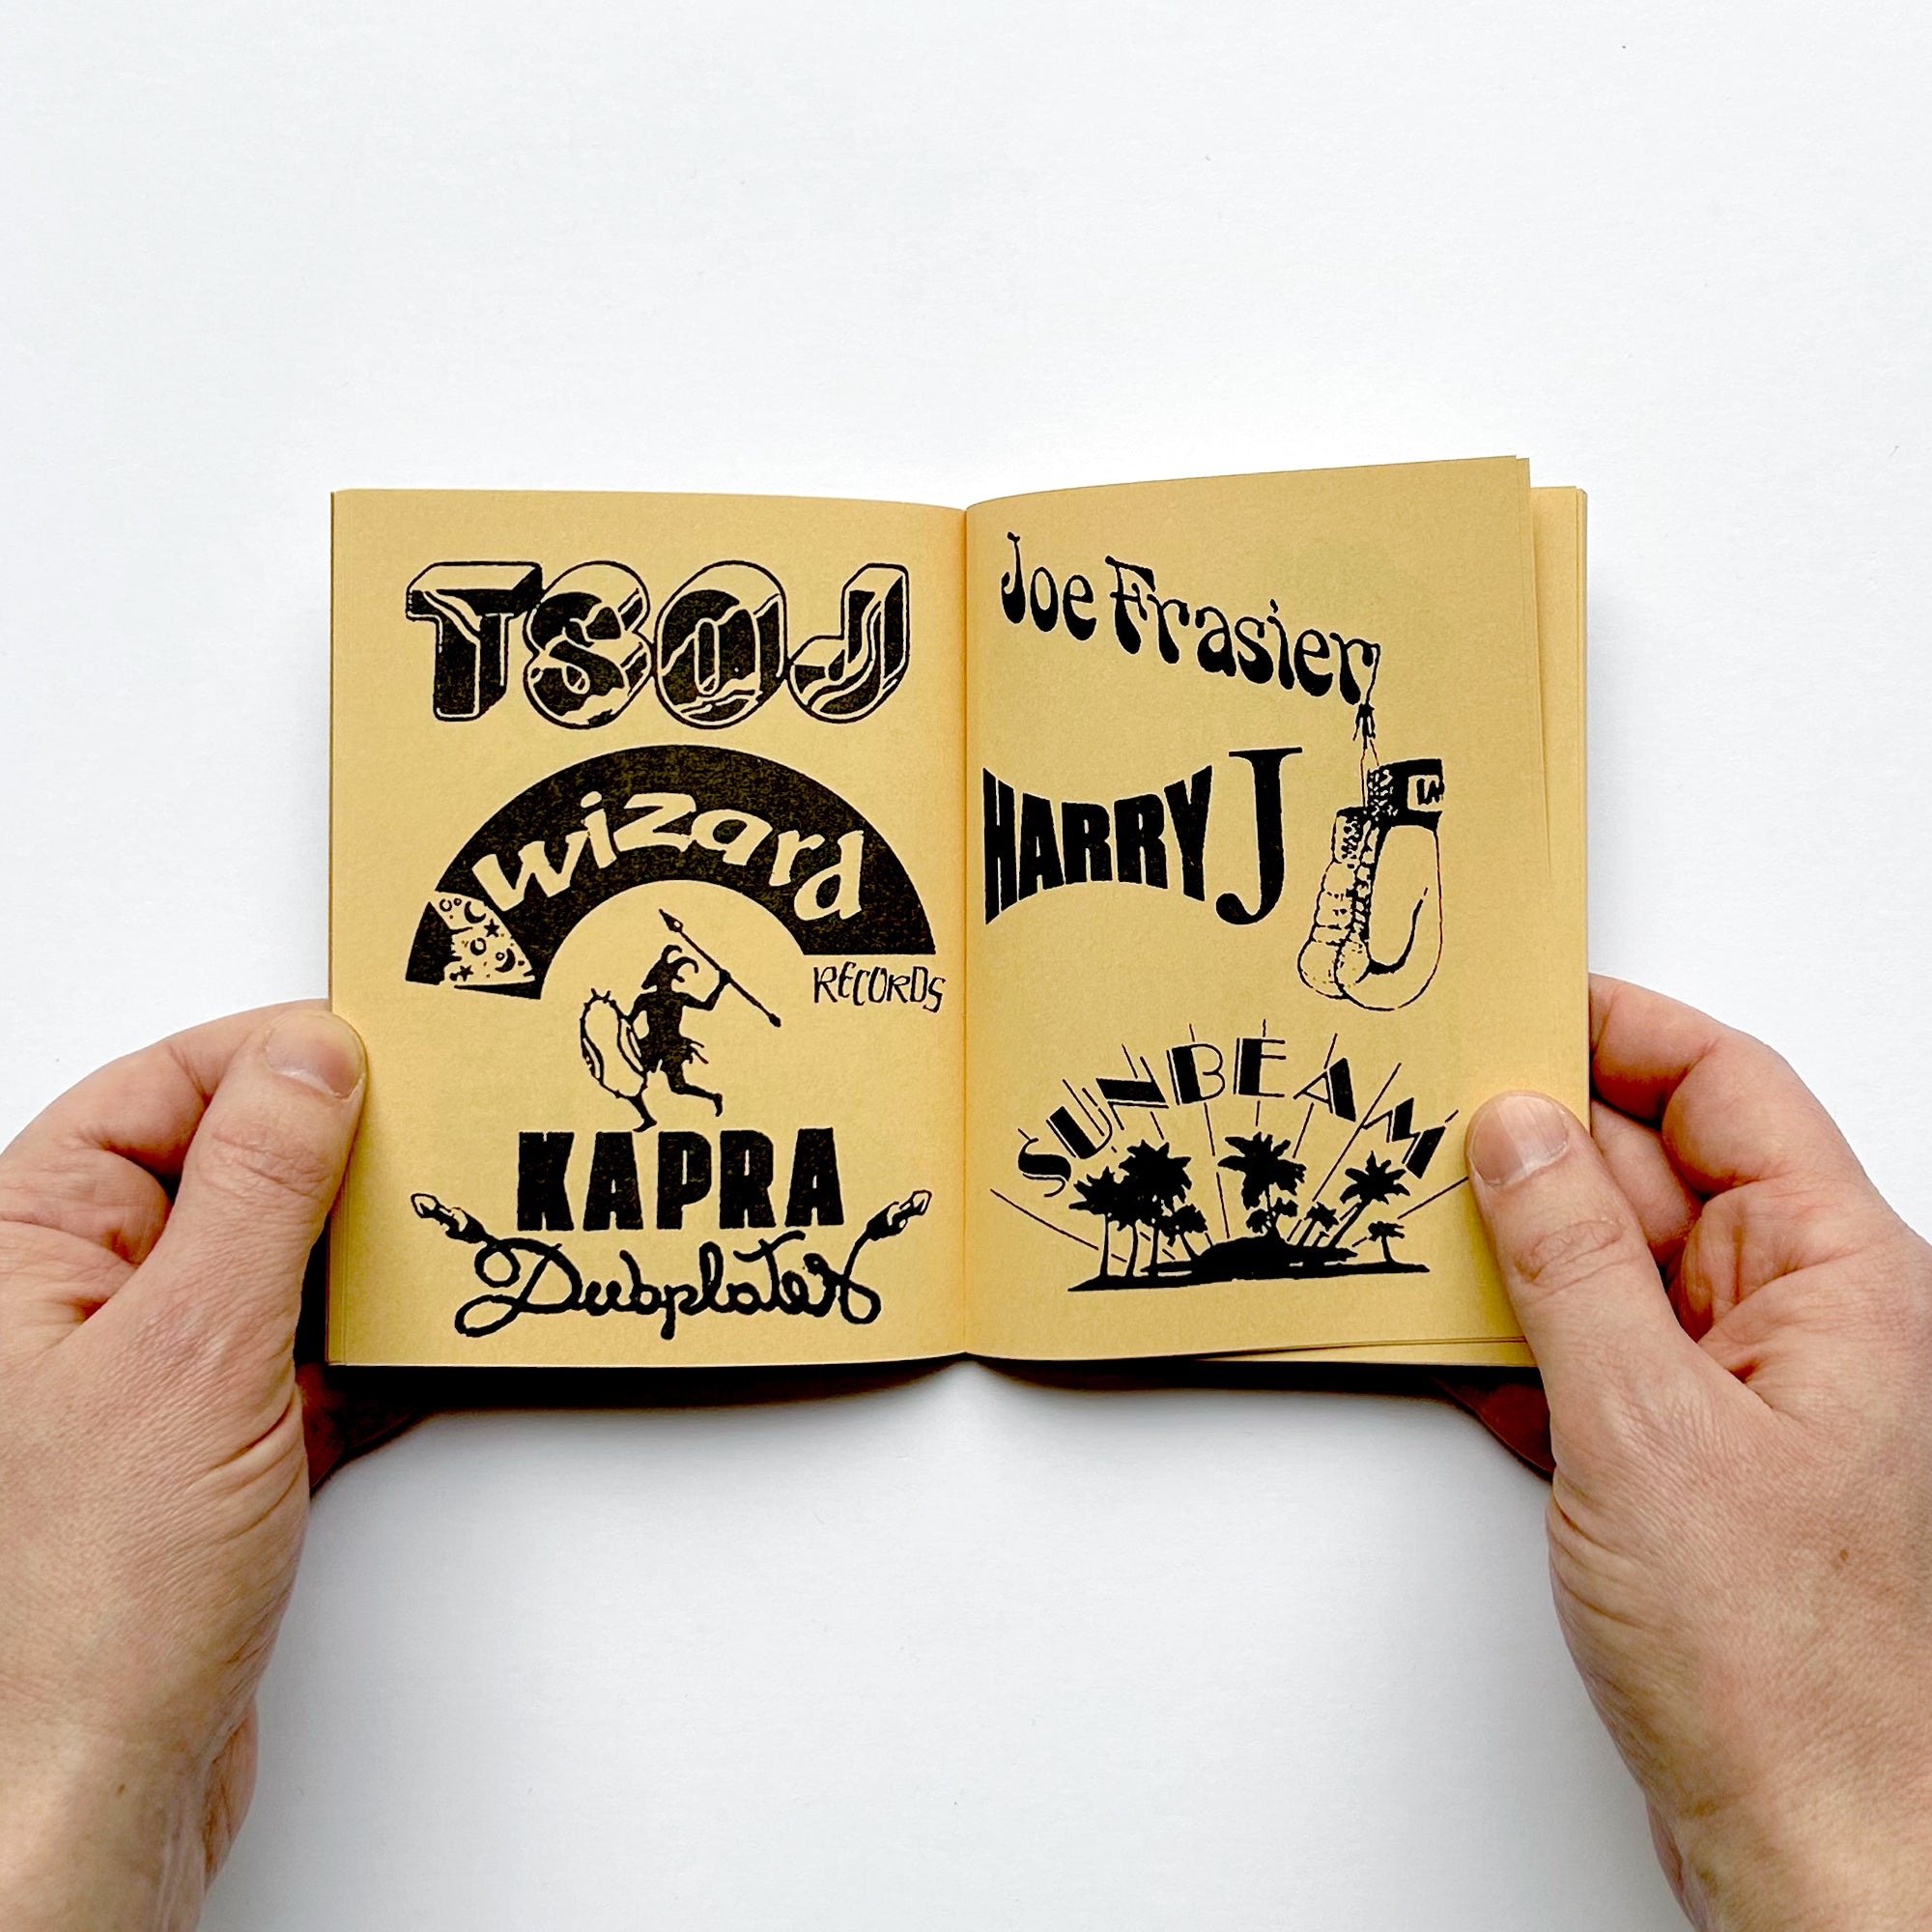 TSOJ
wizard
RECORDS
KAPRA
Dubplates
Joe Frasier
HARRY J
SUNBEAM